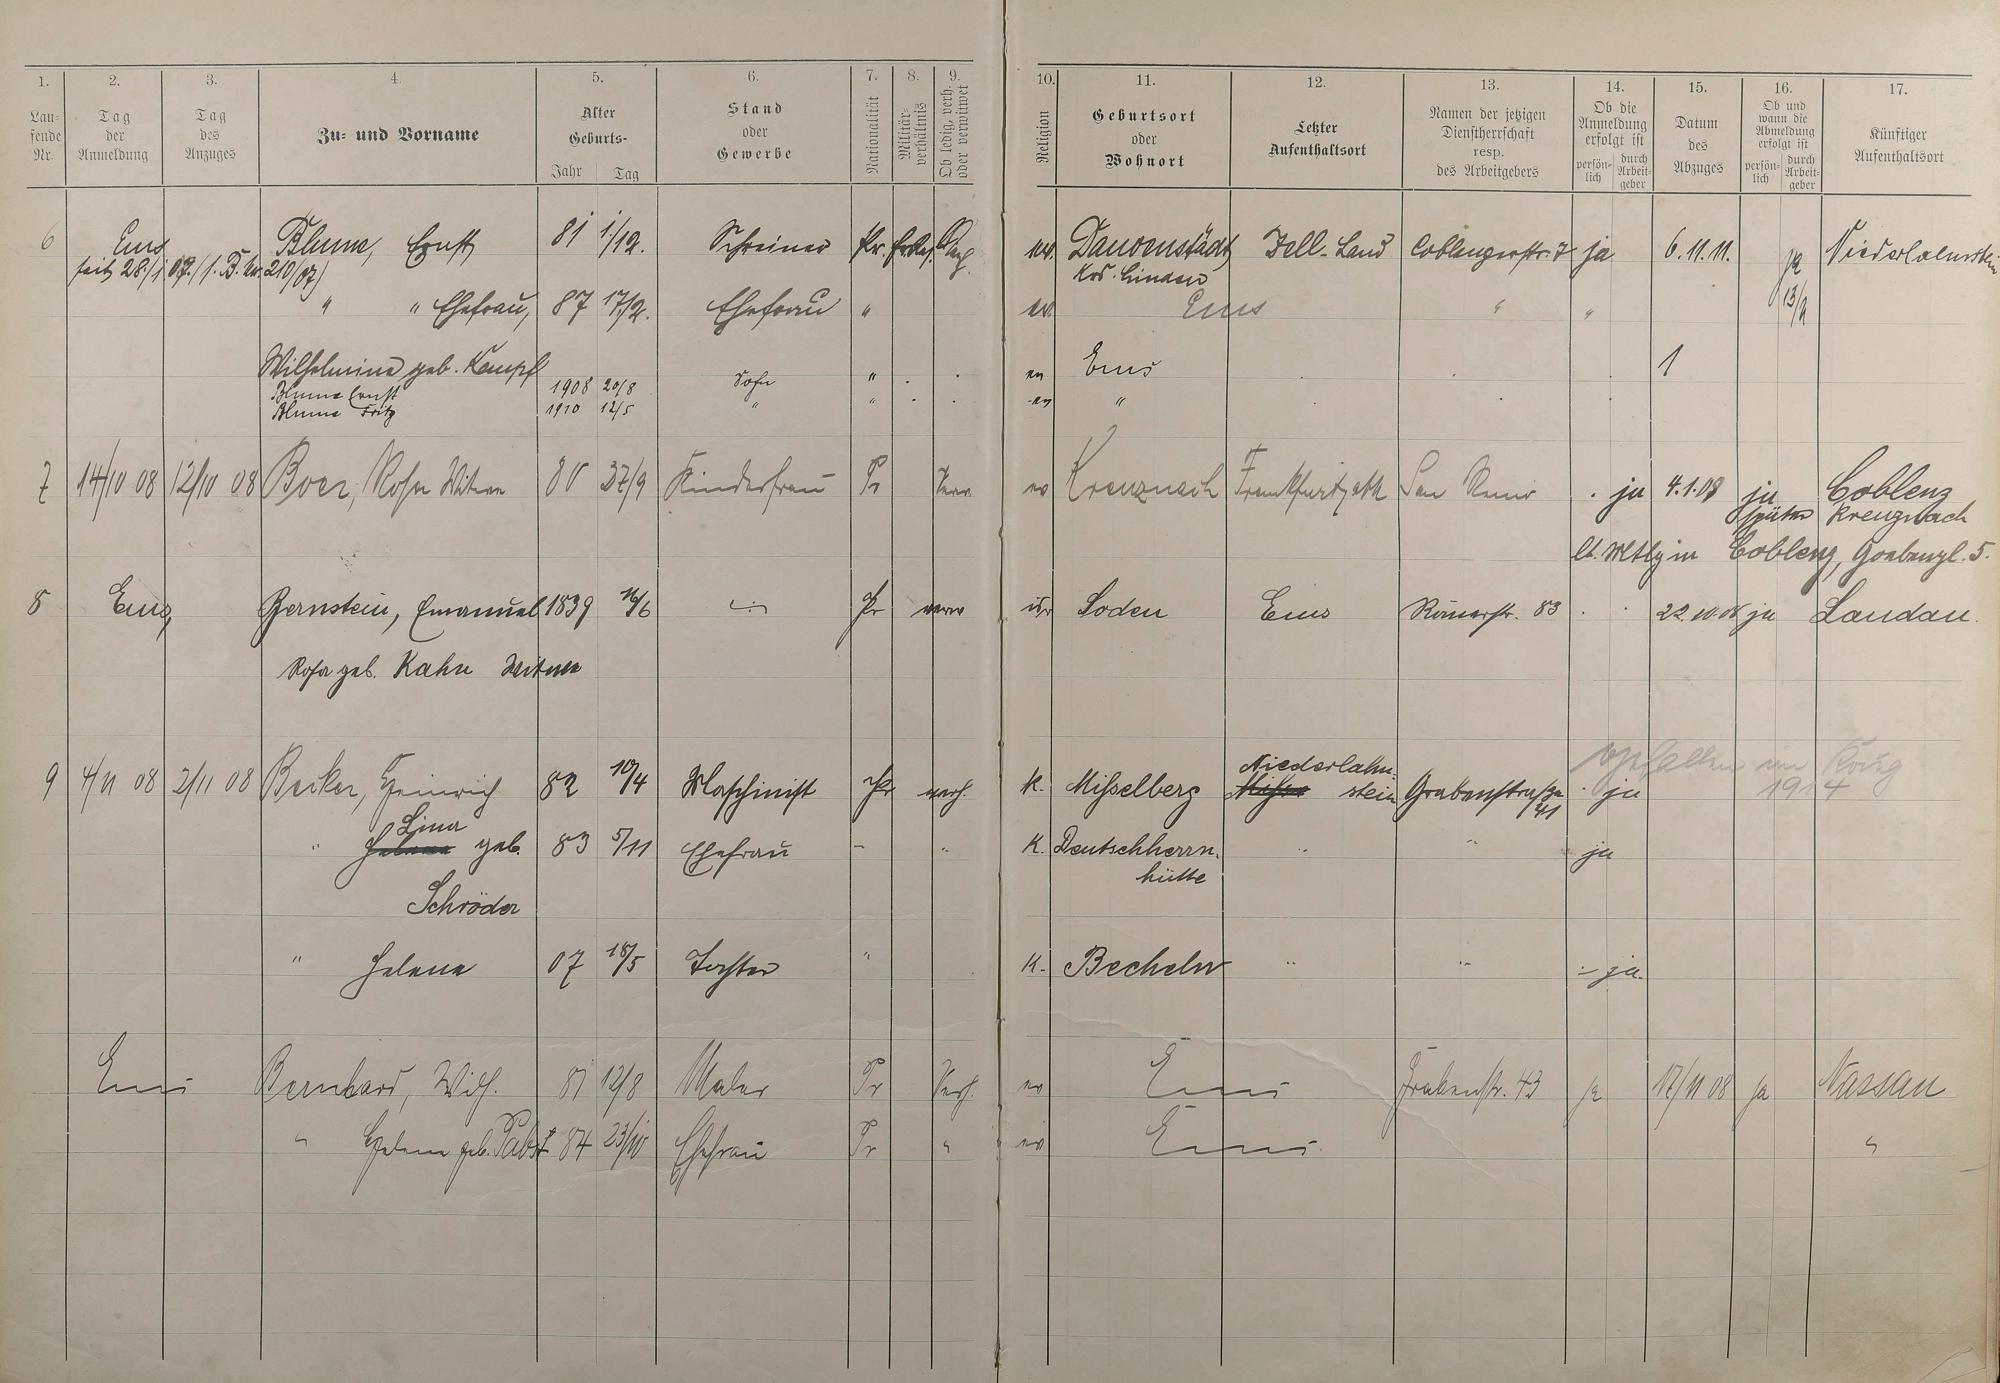 1. 2. 3. 4. 5. 6. 7. 8. 9. 10. 11. 12. 13. 14. 15. 16. 17.
Lau-
fende
Nr.
Tag
der
Anmeldung
Tag
des
Anzuges
Zu- und Vorname
Alter
Geburts-
Jahr Tag
Stand
oder
Gewerbe
Nationalität
Militär-
verhältnis
Ob ledig, verh.
oder verwitwet
Religion
Geburtsort
oder
Wohnort
Letzter
Aufenthaltsort
Namen der jetzigen
Dienstherrschaft
resp.
des Arbeitgebers
Ob die
Anmeldung
erfolgt ist
persön-
lich
durch
Arbeit-
geber
Datum
des
Abzuges
Ob und
wann die
Abmeldung
erfolgt ist
persön-
lich
durch
Arbeit-
geber
Künftiger
Aufenthaltsort
6 Ems Blume, Ernst 81 1/12. Schreiner Pr. ev. Zell-Land Coblenzerstr. 7 ja 6.11.11. ja Niederlahnstein
seit 28./1.07./1.B. Nr. 210/07) Krs. Linden
" " Ehefrau, 87 17/2. Ehefrau " ev. Ems " " 13/11
Wilhelmine geb. Kempf Ems
Blume Ernst 1908 20/8 Sohn " ev
Blume Fritz 1910 12/5 " " ev "
7 14/10 08 12/10 08 Boer, Rosa Witwe 80 27/9 Kinderfrau Pr Verw ev Kreuznach Frankfurt San Remo ja 4.1.08 ja Coblenz
später Kreuznach
lt. Mtlg in Coblenz, Goebenpl. 5.
8 Ems, Bernstein, Emanuel 1839 16/6 Pr verw isr Soden Ems Römerstr. 83 22.10.08 ja Landau.
Rosa geb. Kahn Witwe
gefallen im Krieg
1914
9 4/11 08 2/11 08 Becker, Heinrich 82 10/4 Maschinist Pr verh. K. Misselberg Niederlahn-
stein Grabenstraße 41 ja
" Lina geb. 83 5/11 Ehefrau " " K. Deutschherrn- " " ja
hütte
Schröder
" Helene 07 18/5 Tochter " K. Becheln " " ja.
Ems Bernhard, Wilh. 81 12/8 Maler Pr Verh. ev Ems Grabenstr. 43 ja 17/11 08 ja Nassau
" Helene geb. Pabst 84 23/10 Ehefrau Pr " ev Ems "